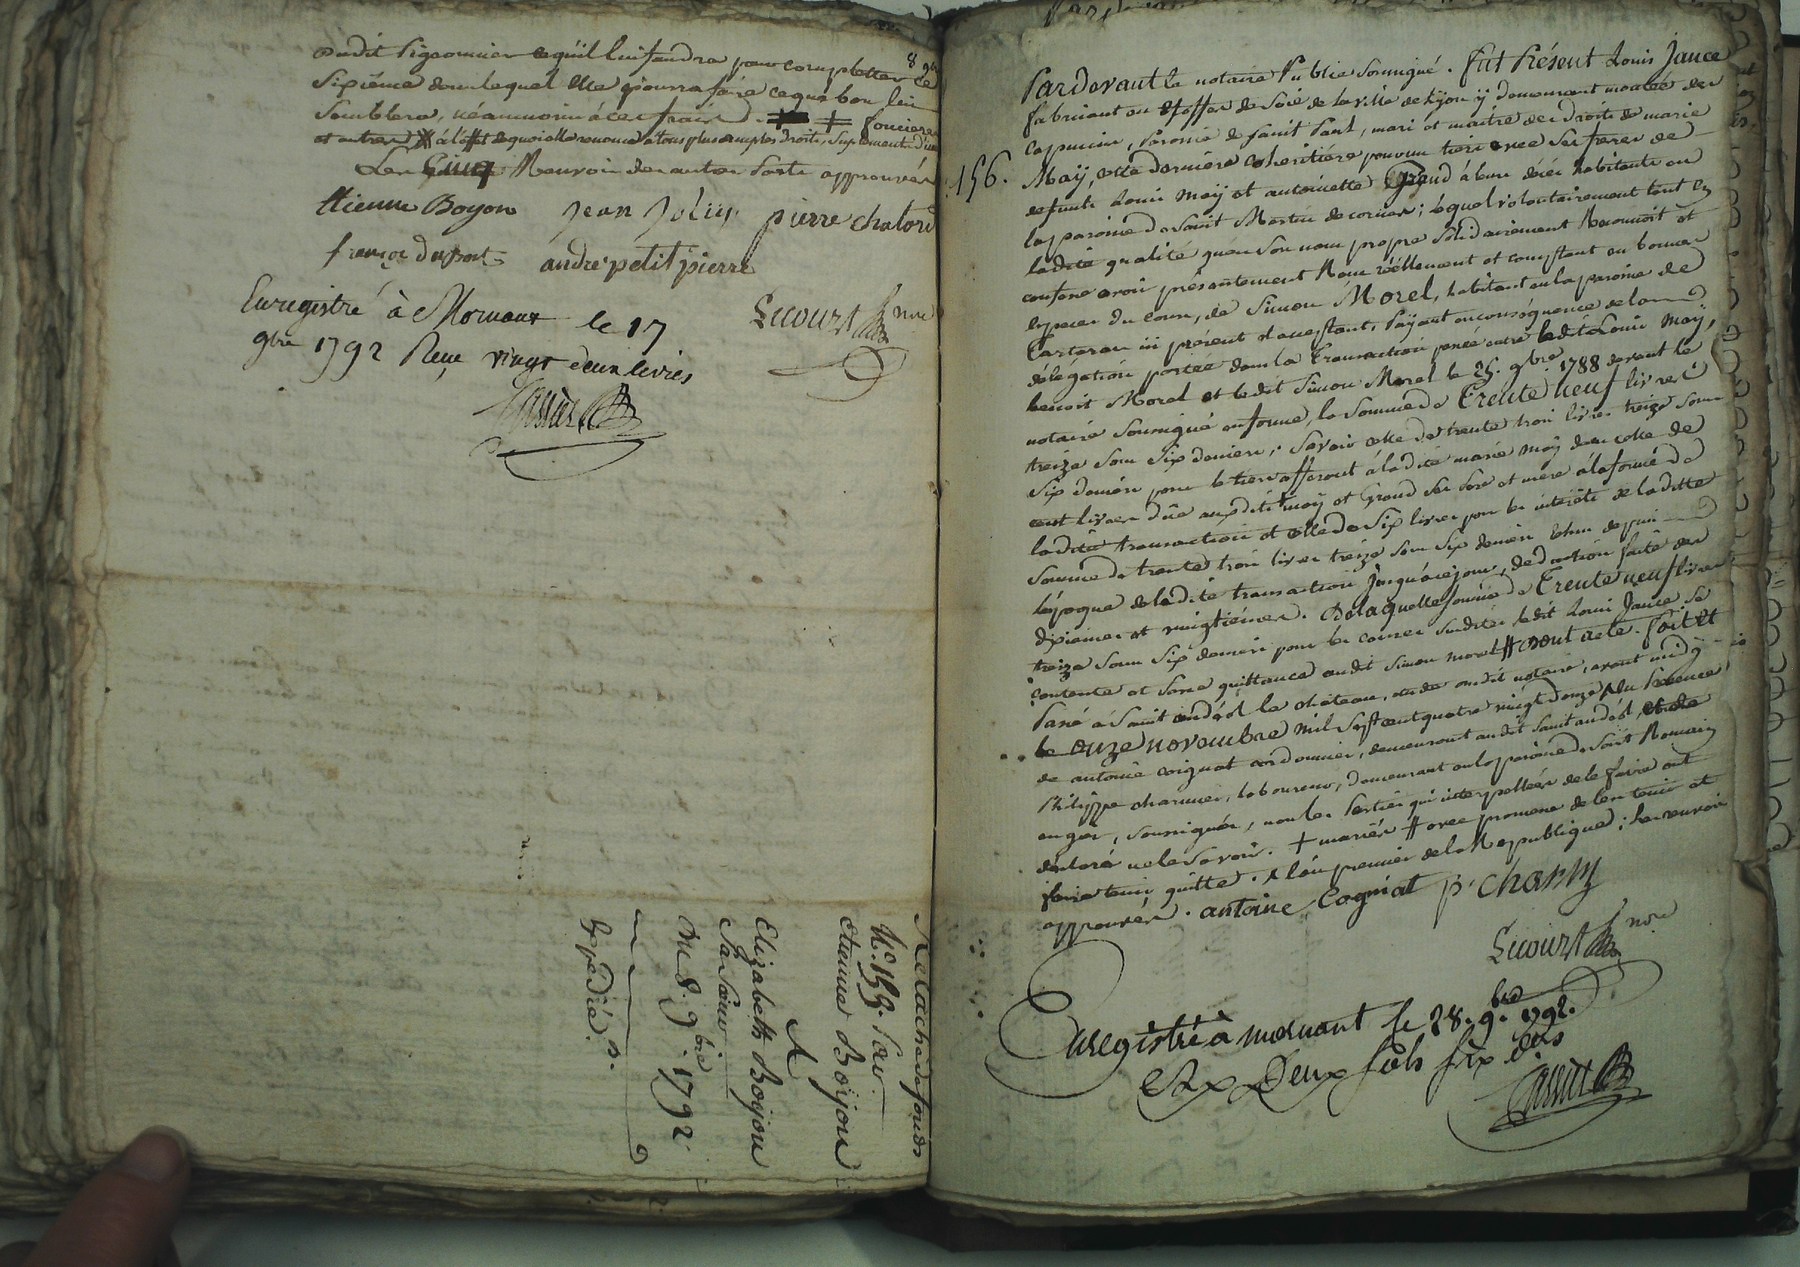 8 9bre
audit Pigeonnier ce qu'il lui faudra pour completter ce
sixiéme dans lequel elle pourra faire ce que bon lui
semblera, néanmoins à ses fraix foncieres
et autres à l'effet de quoi elle renonce a tous plus amples droits, suplement d'iceux
Les Cinq Renvois des autres parts approuvés
Etienne Boyon Jean Jolin pierre chatard
françoi dupont andré petitpierre
Enregistré à Mornant le 17
9bre 1792 Reçu vingt deux livres
Lecourt nre
Relache de fonds
N.° 155. Par
Etienne Boijon
A
Elizabeth Boijon
Sa Sœur
Du 8. 9bre. 1792.
Expédiée.
156.
Pardevant le notaire Public soussigné. fut Présent Louis Jance
fabricant en Etoffes de soie de la ville de Lyon y demeurant montée des
capucins, Paroisse de saint Paul, mari et maitre des droits de marie
Maÿ, cette derniére cohéritiére pour un tiers avec ses freres de
defunts Louis maÿ et antoinette Grand à leur décès habitants en
la paroisse de Saint Martin de cornas; lequel volontairement tant en
ladite qualité qu'en son nom propre solidairement Reconnoit et
confesse avoir présentement Reçu réellement et comptant en bonnes
especes du cours, de Simon Morel, habitant en la paroisse de
Tartaras ici présent et acceptant, Payant en conséquence de la
délégation portée dans la transaction passée entre ledit Louis May,
benoit Morel et ledit Simon Morel le 25. 9bre 1788 devant le
notaire soussigné en forme, la somme de Trente neuf livres
treize sous six deniers; Savoir celle de trente trois livres treize sous
six deniers pour le tiers afferent à ladite marie maÿ dans celle de
cent livres dûe auxdits maÿ et Grand ses pere et mere à la forme de
ladite transaction et celle de six livres pour les intérêts de ladite
somme de trente trois livres treize sous six deniers échus depuis
l'époque de ladite transaction jusqu'à ce jour, déduction faite des
dixiémes et vingtiémes. De laquelle somme de Trente neuf livres
treize sous six deniers pour les causes susdites ledit Louis Jance se
contente et passe quittance audit Simon morel # Dont acte. fait et
Passé à Saint andéol le château, étude dudit notaire, avant midy
le onze novembre mil sept cent quatre vingt douze en Présence
de antoine coignat cordonnier, demeurant audit saint andéol, et de
Philippe charmier, laboureur, demeurant en la paroisse de saint Romain
en gier, soussignés, non les Parties qui interpellées de le faire ont
déclaré ne le savoir. + mariés # avec promesse de l'en tenir et
faire tenir quitte. l'an premier de la Republique; les renvois
approuvés. antoine Cogniat p. Charmy
Lecourt nre
Enregistré à mornant le 28. 9.bre 1792.
Rx Deux sols six ds